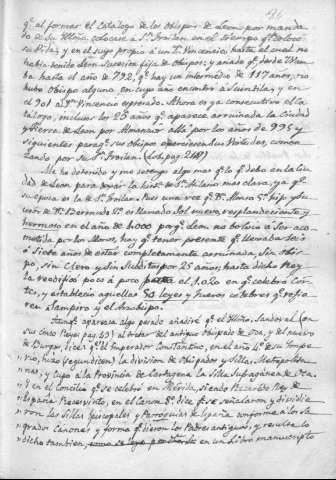 q.e al formar el Catalogo de los Obispos de Leon por manda
do de su Illmo, colocase à S.n Froilan en el tiempo q.e
sustituta, y en el suyo propio à un D.n Vincencio, hasta el cual no
habia tenido Leon Sucesion fija de Obispos: y aniade q.e desde
ba hasta el año de 792, q.e hay un intermedio de 117 años, no
hubo Obispo alguno, en cuyo año encontro à Suintila, y en
el 901 à D.n Vincencio espresado. Ahora es ya consecutivo el Ca
tálogo, incluso los 25 años q.e aparece arruinada la Ciudad
y tierra de Leon por Almanzor allá por los años de 995 y
siguientes para q.e sus Obispos exerciesen sus Visitas, comen
zando por su S.n Froilan. (Lob. pag. 218)
Me he detenido y me detengo algo mas q.e lo q.e debia en la Ciu
dad de Leon para dejar la hist.a de S.n mas clara, ya q.e
su epoca es la de S.n Froilan. Pues una vez q.e D.n Alonso 5.º hijo y
de D.n Bermudo 2.º es llamado Sol nuevo, resplandeciente y
hermoso en el año de 1.000 porq.e Leon no bolvia à Ser aco
metida por los Moros, hay q.e tener presente q.e llevaba seis
ò Siete años de estar completamente arruinada, Sin Obis
po, Sin Clero y Sin Subditos por 25 años, hasta dicho Rey
la reedificò poco à poco el 1.020 en q.e celebrò Cór
tes, y estableciò aquellas 50 leyes y Fueros celebres q.e refie
ren Sampiro y el Arzobispo.
Aunq.e aparezca algo pesado añadiré q.e el Illmo. Sandoval (en
sus Cinco Reyes pag. 69) al tratar del antiguo obispado de Oca, y del nuevo
de Burgos, dice: q.e "El Emperador Constantino, en el año 4.º de su Impe
rio, hizo (segun dicen) la division de Obispados y Sillas Metropolita
nas, y cupo à la Provincia de Cartagena la Silla Sufragánea de Oca.
Y en el Concilio q.e se celebrò en Merida, siendo Recaredo Rey de
España Recesvinto, en el Canon 8.º dice q.e se señalaron y dividie
ron las Sillas Episcopales y Parroquias de España conforme à los Sa
grados Canones y forma q.e dieron los Padres antiguos; y resulta lo
dicho tambien, en un libro manuscripto